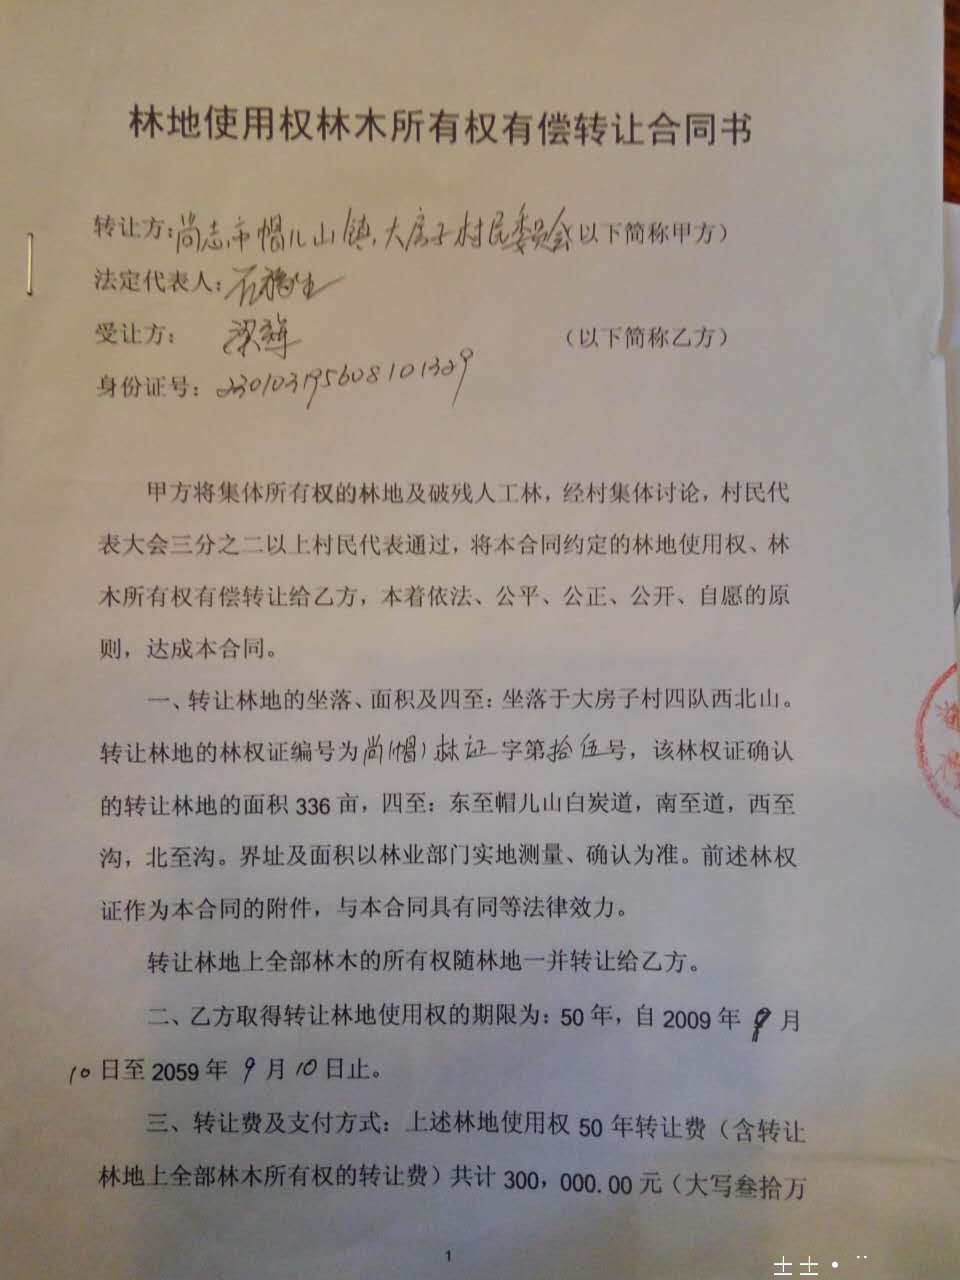 林地使用权林木所有权有偿转让合同书
转让方:尚志市帽儿山镇大房子村民委员会(以下简称甲方)
法定代表人:石
受让方: 梁辉 (以下简称乙方)
身份证号: 230103195608101329
甲方将集体所有权的林地及破残人工林,经村集体讨论,村民代
表大会三分之二以上村民代表通过,将本合同约定的林地使用权、林
木所有权有偿转让给乙方,本着依法、公平、公正、公开、自愿的原
则,达成本合同。
一、转让林地的坐落、面积及四至:坐落于大房子村四队西北山。
转让林地的林权证编号为尚(帽)林证字第拾伍号,该林权证确认
的转让林地的面积 336 亩,四至:东至帽儿山白炭道,南至道,西至
沟,北至沟。界址及面积以林业部门实地测量、确认为准。前述林权
证作为本合同的附件,与本合同具有同等法律效力。
转让林地上全部林木的所有权随林地一并转让给乙方。
二、乙方取得转让林地使用权的期限为:50 年,自 2009 年 9 月
10 日至 2059 年 9 月 10 日止。
三、转让费及支付方式:上述林地使用权 50 年转让费(含转让
林地上全部林木所有权的转让费)共计 300,000.00 元(大写叁拾万
1
士士·¨